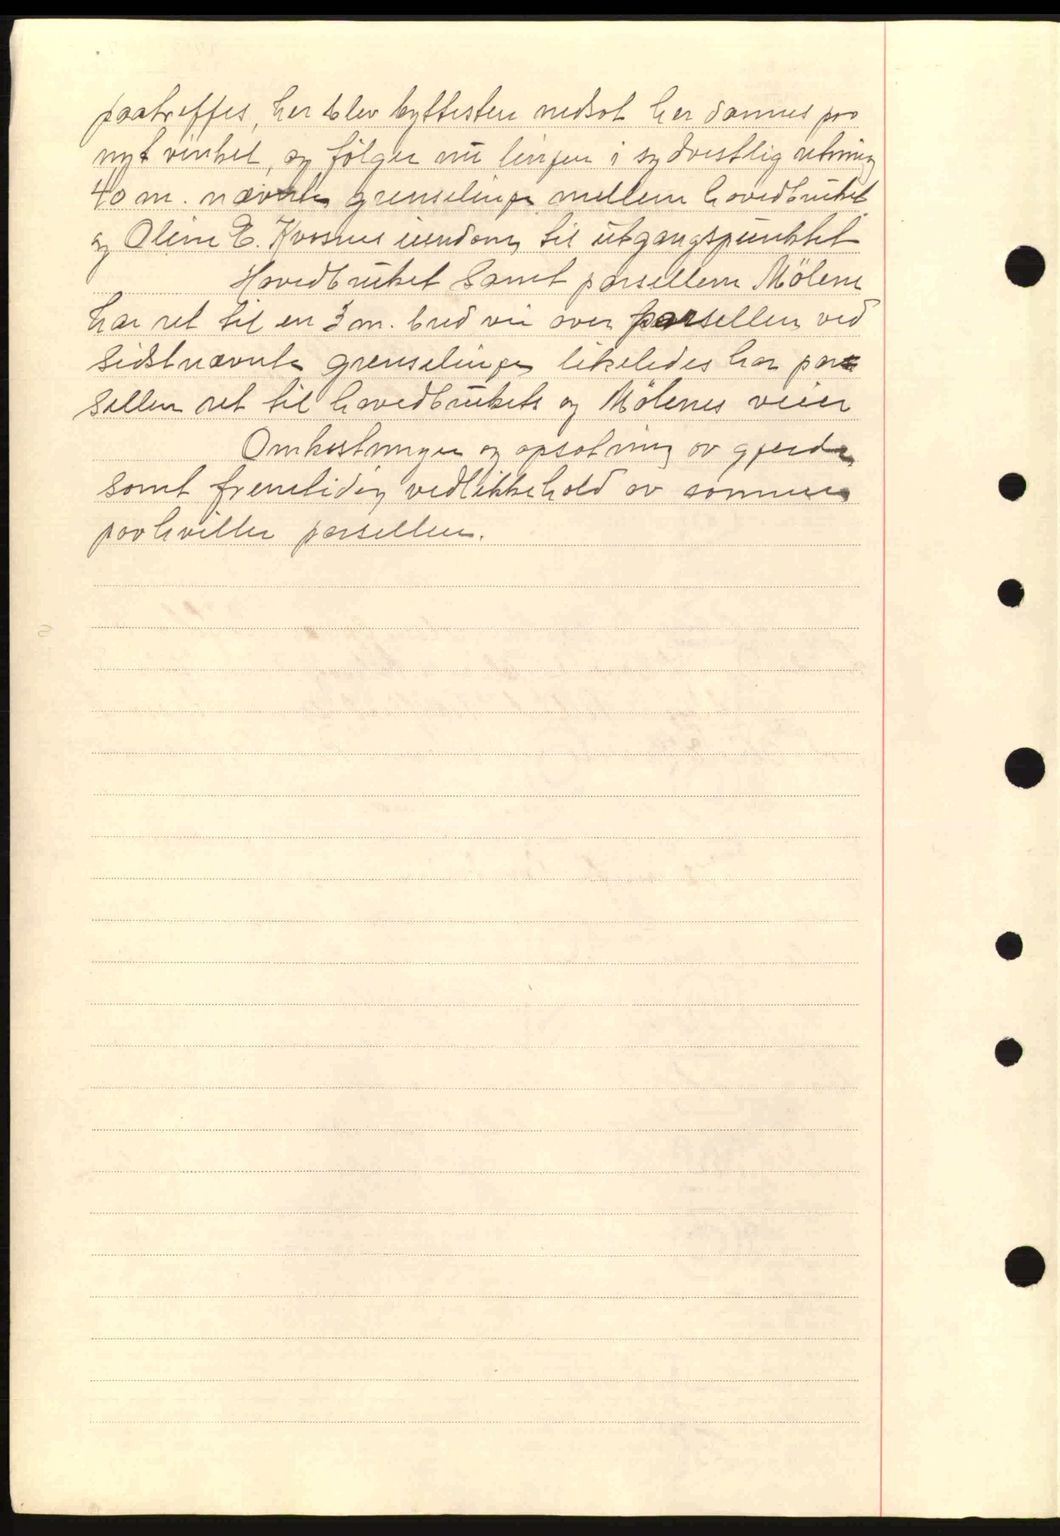 paatreffes, her blev byttesten nedsat her dannes paa
nyt vinkel, og følger nu linjen i sydvestlig retning
40 m. nævnte grenselinje mellem hovedbruket
og Oline E. Kvasnes eiendom, til utgangspunktet
Hovedbruket samt parsellen Mölene
har ret til en 3 m. bred vei over parsellen ved
sidstnævnte grenselinje likeledes har par
sellen ret til hovedbrukets og Mölenes veier
Omkostninger og opsætning av gjerde,
samt fremtidig vedlikkehold av samme
paahviller parsellen.